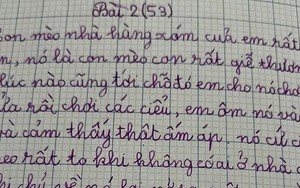 Bài 2 (53)
con mèo nhà hàng xóm cuả em rất
n, nó là con mèo con rất giễ thươn
lúc nào cũng tới chỗ đó em cho nó chơ
ưa rồi chơi các ciểu, em ôm nó và
và cảm thấy thật ấm áp, nó cứ c
eo rất to khi không có ai ở nhà.